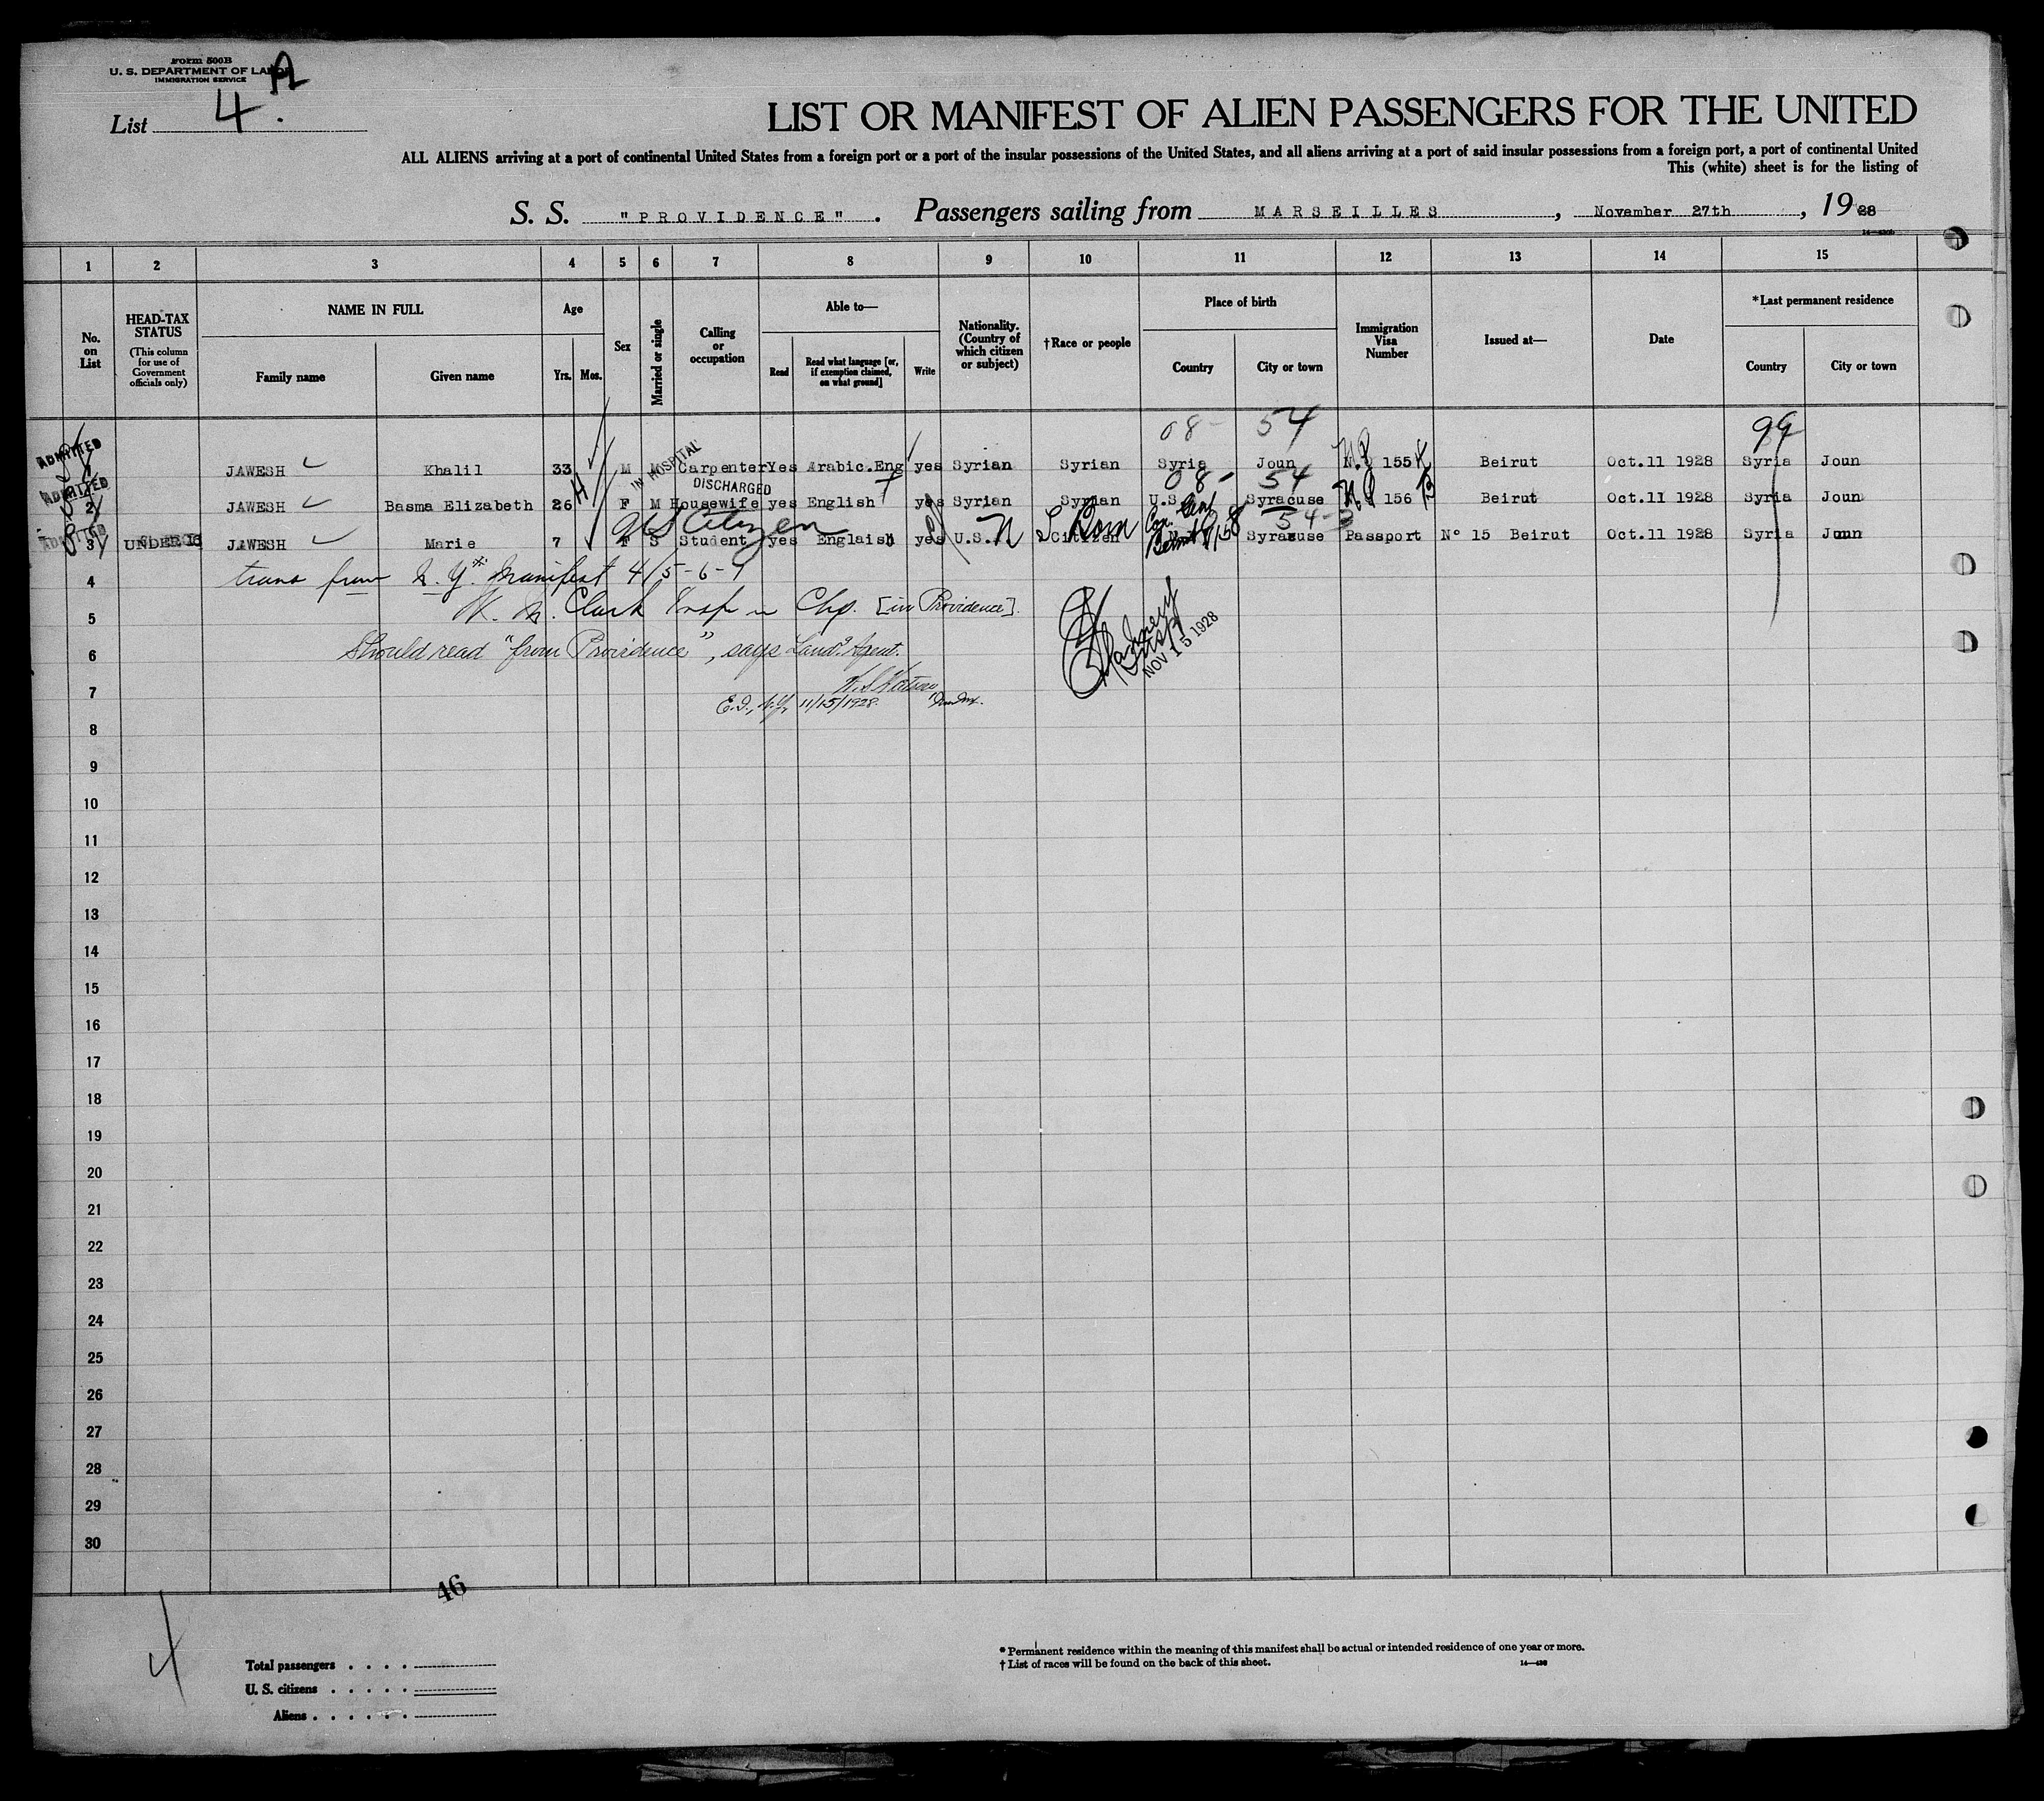 Form 500B
U. S. DEPARTMENT OF LABOR
IMMIGRATION SERVICE
A
List 4.
LIST OR MANIFEST OF ALIEN PASSENGERS FOR THE UNITED
ALL ALIENS arriving at a port of continental United States from a foreign port or a port of the insular possessions of the United States, and all aliens arriving at a port of said insular possessions from a foreign port, a port of continental United
This (white) sheet is for the listing of
S. S. "PROVIDENCE". Passengers sailing from MARSEILLES, November 27th, 1928
1 2 3 4 5 6 7 8 9 10 11 12 13 14 15
No. on List
HEAD-TAX STATUS
(This column for use of Government officials only)
NAME IN FULL
Family name
Given name
Age
Yrs. Mos.
Sex
Married or single
Calling or occupation
Able to—
Read
Read what language [or, if exemption claimed, on what ground]
Write
Nationality. (Country of which citizen or subject)
†Race or people
Place of birth
Country
City or town
Immigration Visa Number
Issued at—
Date
*Last permanent residence
Country
City or town
08- 54 99
ADMITTED
1 JAWESH Khalil 33 M M Carpenter Yes Arabic.Eng yes Syrian Syrian Syria Joun N.Q 155 Beirut Oct.11 1928 Syria Joun
IN HOSPITAL
DISCHARGED
08- 54
ADMITTED
2 JAWESH Basma Elizabeth 26 F M Housewife yes English yes Syrian Syrian U.S. Syracuse 156 Beirut Oct.11 1928 Syria Joun
US Citizen
54-3
ADMITTED
3 UNDER 16 JAWESH Marie 7 F S Student yes Englaish yes U.S. Citizen Born Syracuse Passport N° 15 Beirut Oct.11 1928 Syria Joun
4 trans from N. Y. Manifest 4/5-6-7
5 K. N. Clark Insp in Chg. [in Providence].
6 Should read "from Providence", says Land'g Agent.
NOV 15 1928
7 E.I., N.Y. 11/15/1928.
8
9
10
11
12
13
14
15
16
17
18
19
20
21
22
23
24
25
26
27
28
29
30
46
4
Total passengers . . . .
U. S. citizens . . . . .
Aliens . . . . . .
* Permanent residence within the meaning of this manifest shall be actual or intended residence of one year or more.
† List of races will be found on the back of this sheet.